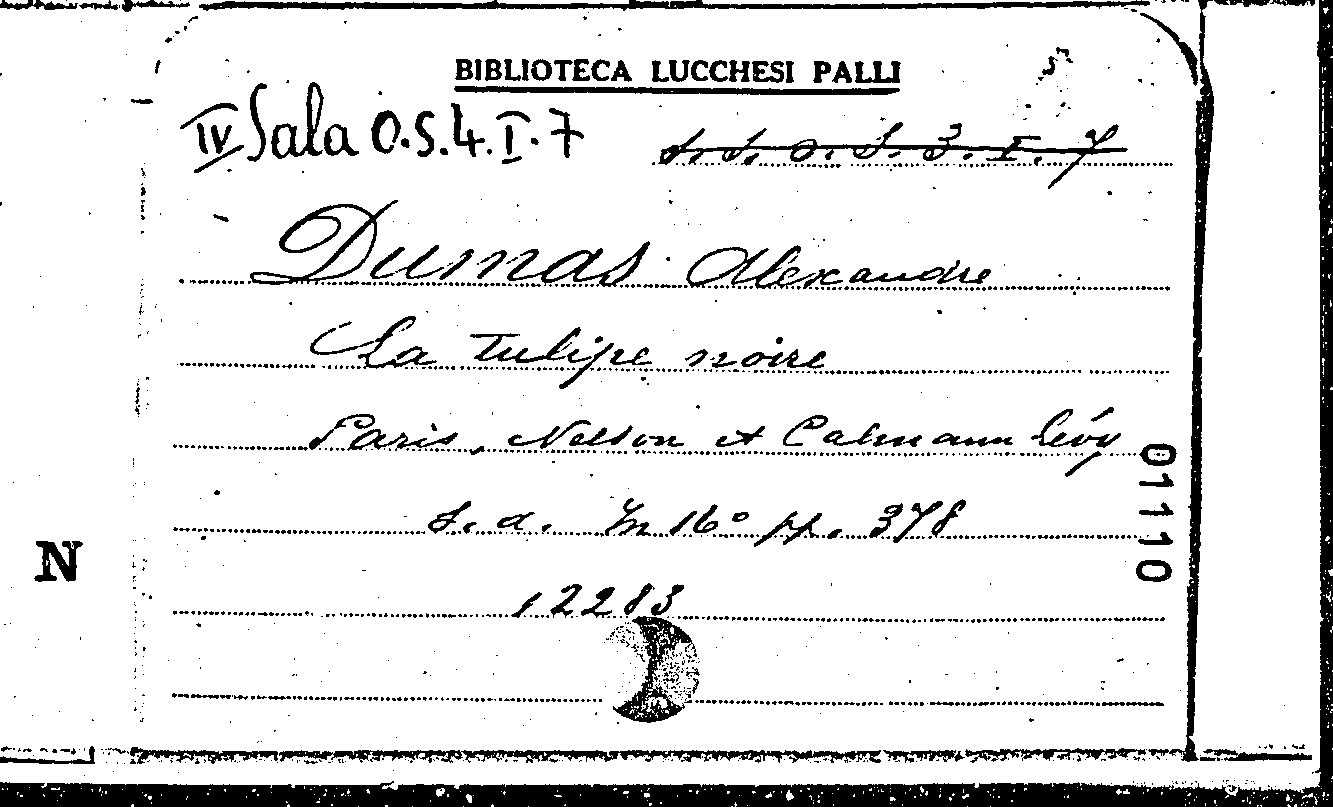 BIBLIOTECA LUCCHESI PALLI
IV Sala O.S.4.I.7
S. S. O. S. 3. I. 7
Dumas Alexandre
La tulipe noire
Paris, Nelson et Calmann Lévy
s. d. In 16° pp. 378
12283
01110
N